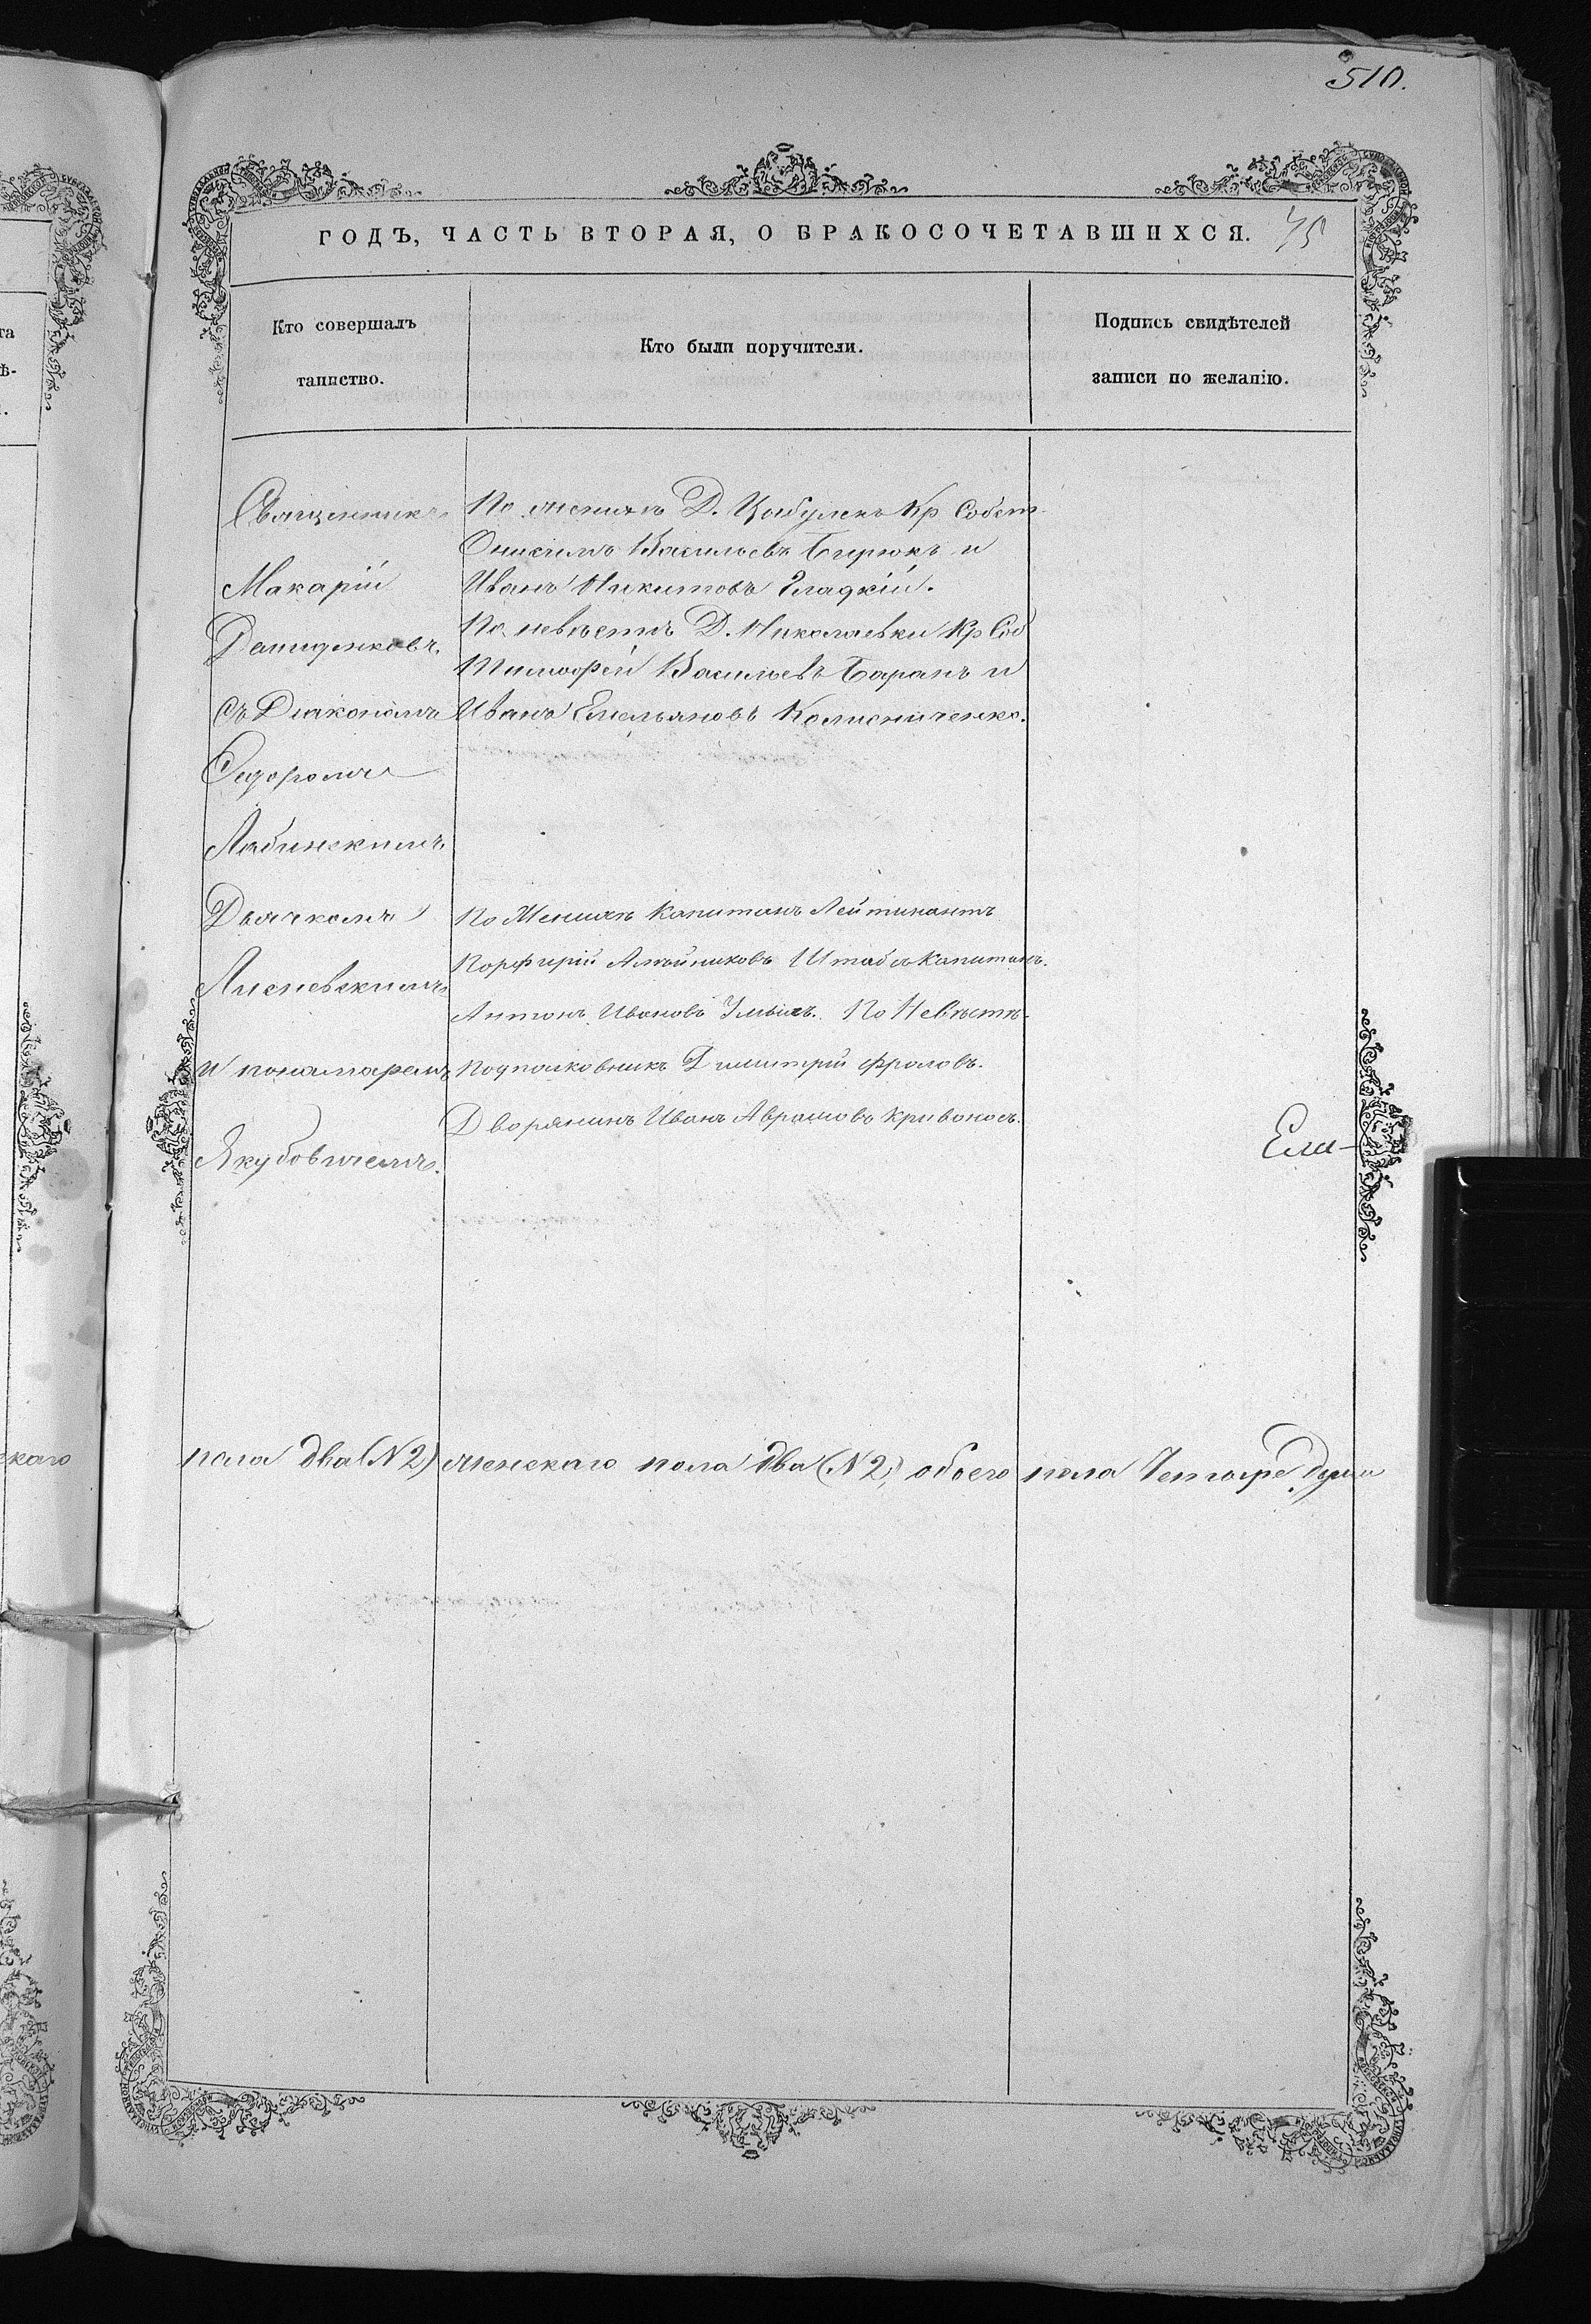 510.
ГОДЪ, ЧАСТЬ ВТОРАЯ, О БРАКОСОЧЕТАВШИХСЯ. 75
Кто совершалъ
таинство.
Кто были поручители.
Подпись свидѣтелей
записи по желанію.
Священникъ
Макарій
Демиденковъ
съ Діакономъ
Сидоромъ
Лабинскимъ
Дьячкомъ
Лисневскимъ
и понамаремъ
Якубовичемъ.
По женихѣ Д. Цыбулекъ Кр Собст
Онисимъ Васильевъ Бирюкъ и
Иванъ Никитовъ Гладкій.
По невѣстѣ Д. Николаевки Кр Соб
Тимофей Васильевъ Баранъ и
Иванъ Емельяновъ Колисниченко.
По Женихѣ Капитанъ Лейтинантъ
Порфирій Алейниковъ Штабсъ Капитанъ.
Антонъ Ивановъ По Невѣстѣ
Подполковникъ Димитрій Фроловъ.
Дворянинъ Иванъ Аврамовъ Кривоносъ.
пола два (N 2) женскаго пола два (N 2) обоего пола Четыре души
скаго